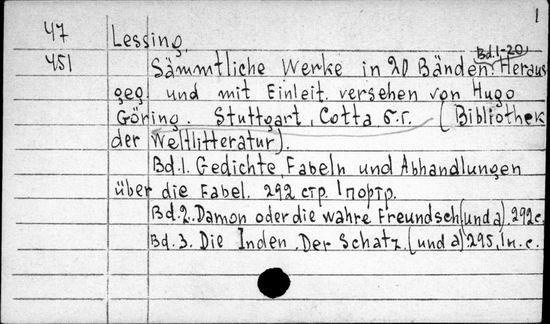 1
47 Lessing,
Bd.1-20
451 Sämmtliche Werke in 20 Bänden. Heraus
geg. und mit Einleit. versehen von Hugo
Göring. Stuttgart, Cotta б.г. (Bibliothek
der Weltlitteratur).
Bd.1. Gedichte, Fabeln und Abhandlungen
über die Fabel. 292 стр. 1 портр.
Bd.2. Damon oder die wahre Freundsch (und a). 292 с.
Bd.3. Die Inden. Der Schatz. (und a) 295, 1 н.с.